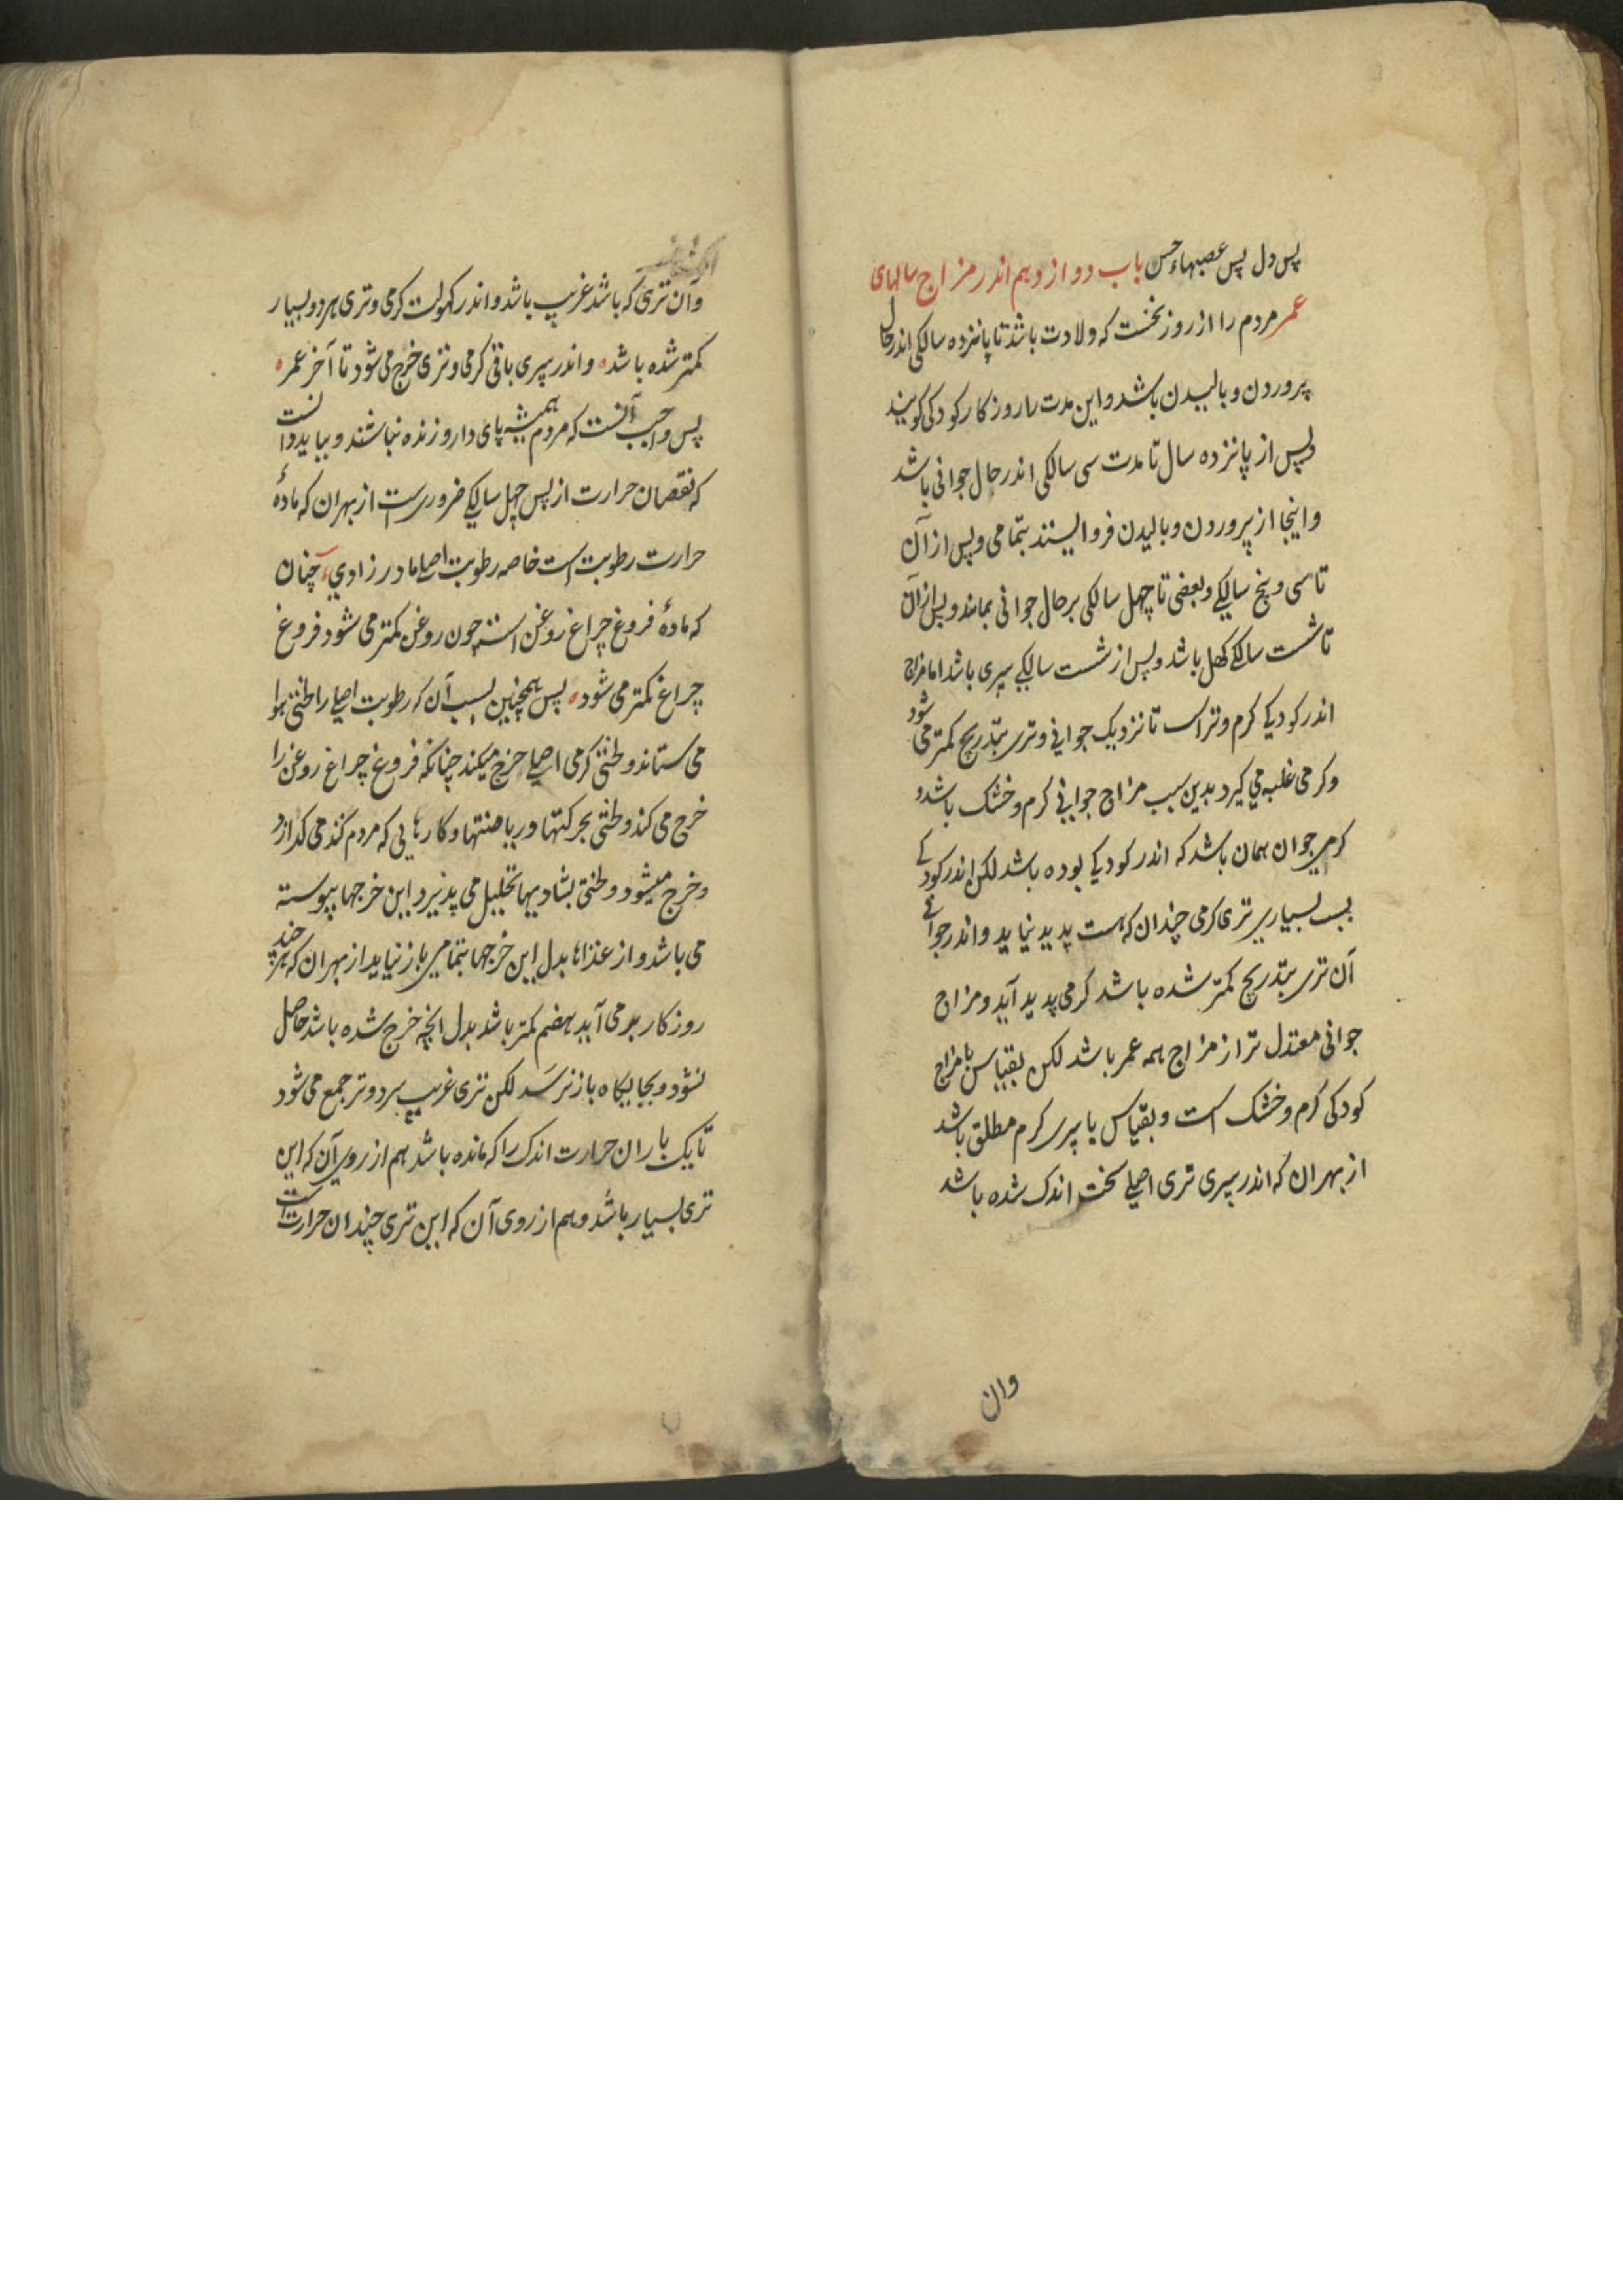 پس دل پس عصبهاء حس باب دوازدهم اندر مزاج سالهای
عمر مردم را از روز نخست که ولادت باشد تا پانزده سالکی اندر حال
پروردن و بالیدن باشد و این مدت را روزکار کودکی کویند
و پس از پانزده سال تا مدت سی سالکی اندر حال جوانی باشد
و اینجا از پروردن و بالیدن فروایستند بتمامی و پس از آن
تا سی و پنج سالکی و بعضی تا چهل سالکی بر حال جوانی بمانند و پس از آن
تا شست سالکی کهل باشد و پس از شست سالکی پیری باشد اما مزاج
اندر کودکی کرم و تر است تا نزدیک جوانی و تری بتدریج کمتر می شود
و کرمی غلبه می کیرد بدین سبب مزاج جوانی کرم و خشک باشد و
کرمی جوان همان باشد که اندر کودکی بوده باشد لکن اندر کودکی
بسبب بسیاری تری کرمی چندان که هست پدید نیاید و اندر جوانی
آن تری بتدریج کمتر شده باشد کرمی پدید آید و مزاج
جوانی معتدل تر از مزاج همه عمر باشد لکن بقیاس با مزاج
کودکی کرم و خشک است و بقیاس با پیری کرم مطلق باشد
از بهر ان که اندر پیری تری اصلی سخت اندک شده باشد
وان
وان تری که باشد غریب باشد و اندر کهولت کرمی و تری هر دو بسیار
کمتر شده باشد و اندر پیری باقی کرمی و تری خرج می شود تا آخر عمر
پس واجب آنست که مردم همیشه پای دار و زنده نباشند و بباید دانست
که نقصان حرارت از پس چهل سالکی ضروریست از بهر ان که مادهٔ
حرارت رطوبت است خاصه رطوبت اصلی مادر زادی چنان
که مادهٔ فروغ چراغ روغن است چون روغن کمتر می شود فروغ
چراغ کمتر می شود پس همچنین بسبب آن که رطوبت اصلی را لختی هوا
می ستاند و لختی کرمی اصلی خرج میکند چنانکه فروغ چراغ روغن را
خرج می کند و لختی بحرکتها و ریاضتها و کارهایی که مردم کند می کدازد
و خرج میشود و لختی بشادیها تحلیل می پذیرد این خرجها پیوسته
می باشد و از غذاها بدل این خرجها بتمامی باز نیاید از بهر ان که هر چند
روزکار برمی آید هضم کمتر باشد بدل انچه خرج شده باشد حاصل
نشود و بجایکاه باز نرسد لکن تری غریب سرد و تر جمع می شود
تا یک بار ان حرارت اندک را که مانده باشد هم از روی آن که این
تری بسیار باشد و هم از روی آن که این تری چندان حرارت